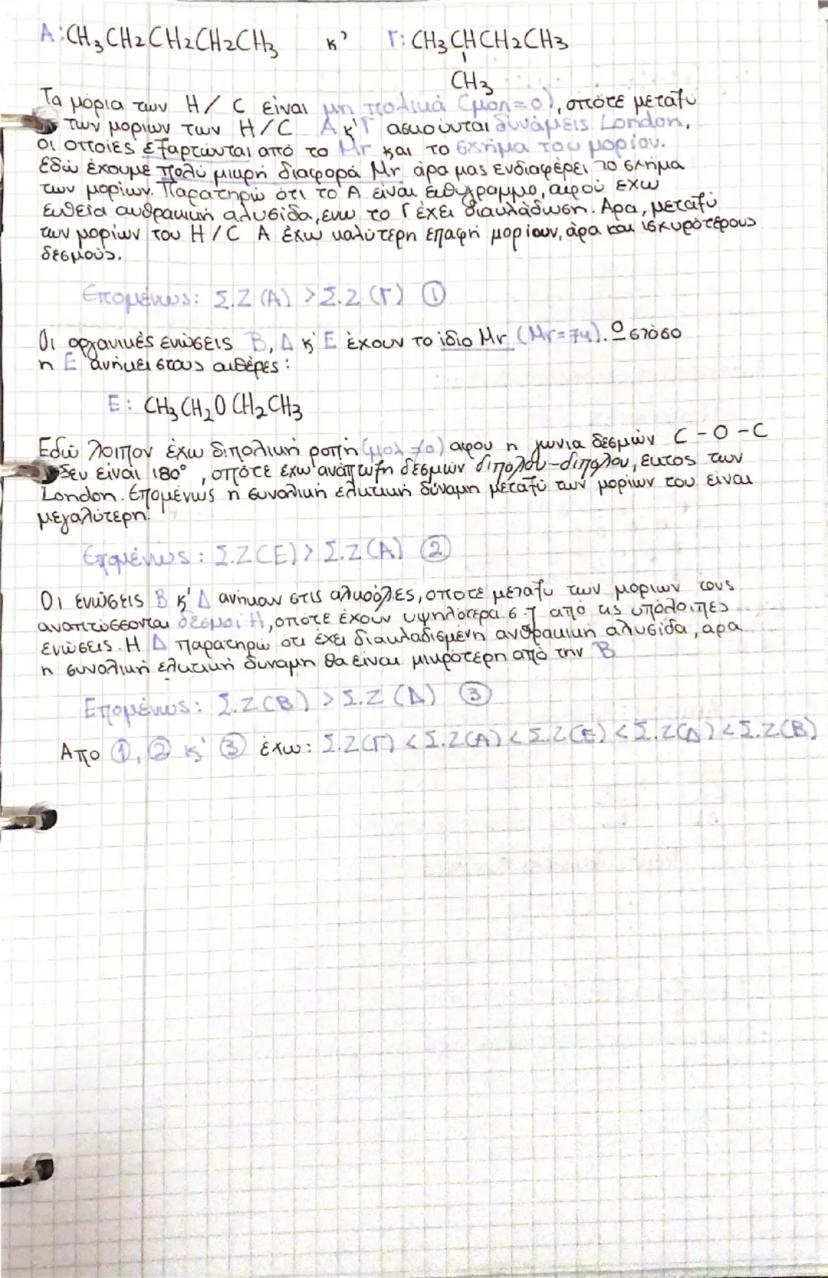 Α: CH3CH2CH2CH2CH3 κ' Γ: CH3CHCH2CH3
CH3
Τα μόρια των H/C είναι μη πολικά (μολ=0), οπότε μεταξύ
των μοριων των H/C Α κ' Γ ασκούνται δυνάμεις London,
οι οποίες εξαρτώνται από το Mr και το σχήμα του μορίου.
Εδώ έχουμε πολύ μικρή διαφορά Mr άρα μας ενδιαφέρει το σχήμα
των μορίων. Παρατηρώ ότι το Α είναι ευθύγραμμο, αφού έχω
ευθεία ανθρακική αλυσίδα, ενω το Γ έχει διακλάδωση. Αρα, μεταξύ
των μορίων του H/C Α έχω καλύτερη επαφή μορίων, άρα και ισχυρότερους
δεσμούς.
Επομένως: Σ.Ζ(Α) > Σ.Ζ(Γ) ①
Οι οργανικές ενώσεις Β, Δ κ' Ε έχουν το ίδιο Mr (Mr=74). Ωστόσο
η Ε ανήκει στους αιθέρες:
Ε: CH3CH2OCH2CH3
Εδώ λοιπον έχω διπολική ροπή (μολ≠0) αφου η γωνια δεσμών C-O-C
δεν είναι 180°, οπότε έχω ανάπτυξη δεσμών διπόλου-διπόλου, εκτος των
London. Επομένως η συνολική ελκτική δύναμη μεταξύ των μορίων του είναι
μεγαλύτερη.
Επομένως: Σ.Ζ(Ε) > Σ.Ζ(Α) ②
Οι ενώσεις Β κ' Δ ανήκαν στις αλκοόλες, οποτε μεταξυ των μοριων τους
αναπτύσσονται δεσμοί Η, οπότε έχουν υψηλότερα σ.ζ από τις υπόλοιπες
ενώσεις. Η Δ παρατηρώ οτι έχει διακλαδισμένη ανθρακική αλυσίδα, αρα
η συνολική ελκτική δυναμη θα είναι μικρότερη από την Β
Επομένως: Σ.Ζ(Β) > Σ.Ζ(Δ) ③
Απο ①, ② κ' ③ έχω: Σ.Ζ(Γ) < Σ.Ζ(Α) < Σ.Ζ(Ε) < Σ.Ζ(Δ) < Σ.Ζ(Β)